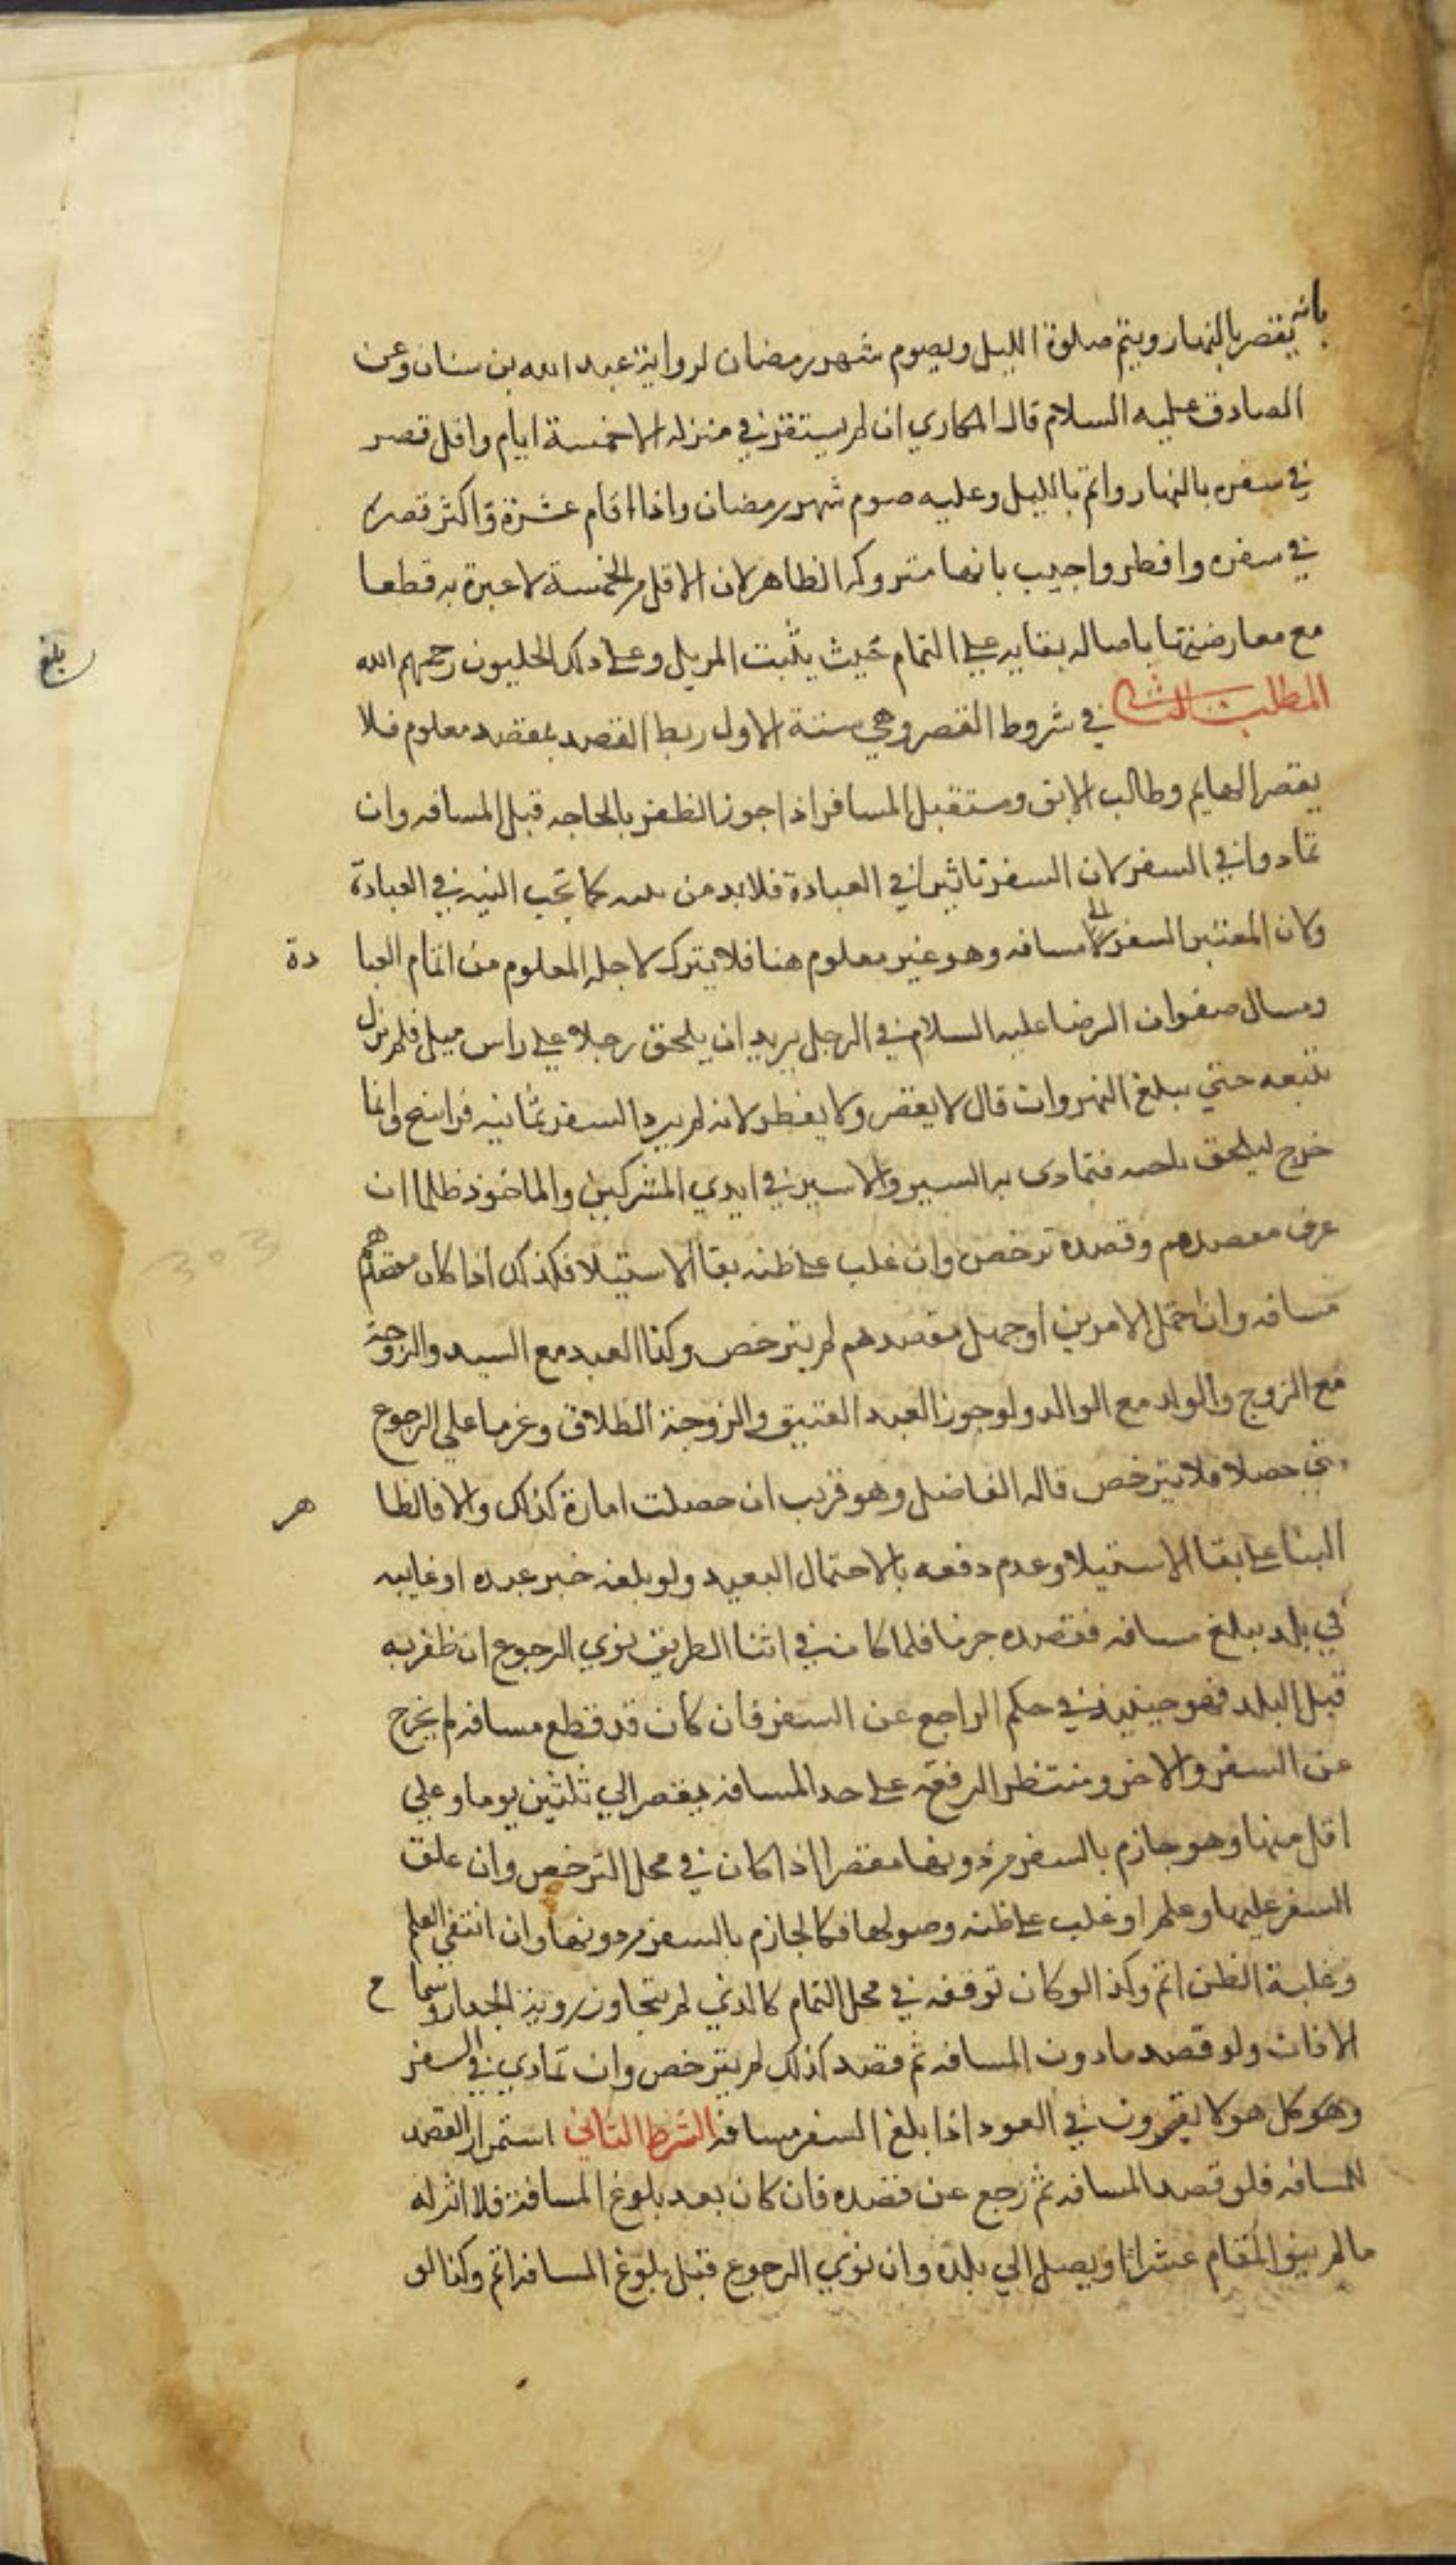 بانه يقصر بالنهار ويتم صلوة الليل ويصوم شهر رمضان لرواية عبد الله بن سنان وعن
الصادق عليه السلام قال المكاري ان لم يستقر في منزله الا خمسة ايام واقل قصر
في سفره بالنهار واتم بالليل وعليه صوم شهر رمضان واذا اقام عشرة واكثر قصر
في سفره وافطر واجيب بانها متروكه الظاهر لان الاقل من الخمسة لا عبرة به قطعا
مع معارضتها باصاله بقايه علي التمام حيث يثبت المزيل وعلى ذلك الحليون رحمهم الله
المطلب الثاني في شروط القصر وهي ستة الاول ربط القصد بمقصد معلوم فلا
يقصر الهايم وطالب الابق ومستقبل المسافر اذا جوز الظفر بالحاجه قبل المسافه وان
تمادوا في السفر لان السفر تاثيرا في العبادة فلابد من كما تجب النيه في العبادة
ولان المعتبر السفر الى مسافه وهو غير معلوم هنا فلا يترك لاجله المعلوم من اتمام العبا دة
وسال صفوان الرضا عليه السلام في الرجل يريد ان يلحق رجلا علي راس ميل فلم يزل
يتبعه حتي يبلغ النهروان قال لا يقصر ولا يفطر لانه لم يرد السفر ثمانيه فراسخ وانما
خرج ليلحق فتمادى به السير والاسير في ايدي المشركين والماخوذ ظلما ان
عرف مقصدهم وقصده ترخص وان غلب على ظنه بقا الاستيلا فكذلك اذا كان مقصدهم
مسافه وان احتمل الامرين او جهل مقصدهم لم يترخص وكذا العبد مع السيد والزوجة
مع الزوج والولد مع الوالد ولو جوز العبد العتيق والزوجة الطلاق وعزما علي الرجوع
متى حصلا فلا يترخص قاله الفاضل وهو قريب ان حصلت امارة كذلك والا فالظا هر
البنا على بقا الاستيلا وعدم دفعه بالاحتمال البعيد ولو بلغه خبر عبده او غايبه
في بلد يبلغ مسافه فقصده جزما فلما كان في اثنا الطريق نوي الرجوع ان ظفر به
قبل البلد فهو حينيذ في حكم الراجع عن السفر فان كان قد قطع مسافه لم يخرج
عن السفر والاخر ومنتظر الرفقه على حد المسافه يقصر الي ثلثين يوما وعلي
اقل منها وهو جازم بالسفر من دونها مقصر اذا كان في محل الترخص وان علق
السفر عليها وعلم او غلب على ظنه وصولها فكالجازم بالسفر من دونها وان انتفى العلم
وغلبة الظن اتم وكذا لو كان توقفه في محل التمام كالذي لم يتجاوز روية الجدار وسما ع
الاذان ولو قصد ما دون المسافه ثم قصد كذلك لم يترخص وان تمادي في السفر
وهو كل هولا يقصرون في العود اذا بلغ السفر مسافه الشرط الثاني استمرار القصد
للمسافه فلو قصد المسافه ثم رجع عن قصده فان كان بعد بلوغ المسافة فلا اثر له
ما لم ينو المقام عشرا او يصل الي بلده وان نوي الرجوع قبل بلوغ المسافه اتم وكذا لو
بلغ
303